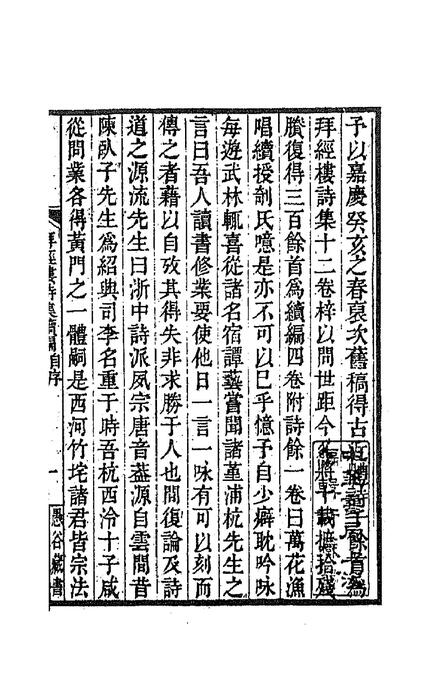 予以嘉慶癸亥之春裒次舊稿得古近體詩千餘首爲
拜經樓詩集十二卷梓以問世距今將十載摭拾殘
賸復得三百餘首爲續編四卷附詩餘一卷曰萬花漁
唱續授剞氏噫是亦不可以已乎憶予自少癖耽吟咏
每遊武林輒喜從諸名宿譚藝嘗聞諸堇浦杭先生之
言曰吾人讀書修業要使他日一言一咏有可以刻而
傳之者藉以自攷其得失非求勝于人也間復論及詩
道之源流先生曰浙中詩派夙宗唐音葢源自雲間昔
陳臥子先生爲紹興司李名重于時吾杭西泠十子咸
從問業各得黃門之一體嗣是西河竹垞諸君皆宗法
拜經樓詩集續編自序
一
愚谷藏書